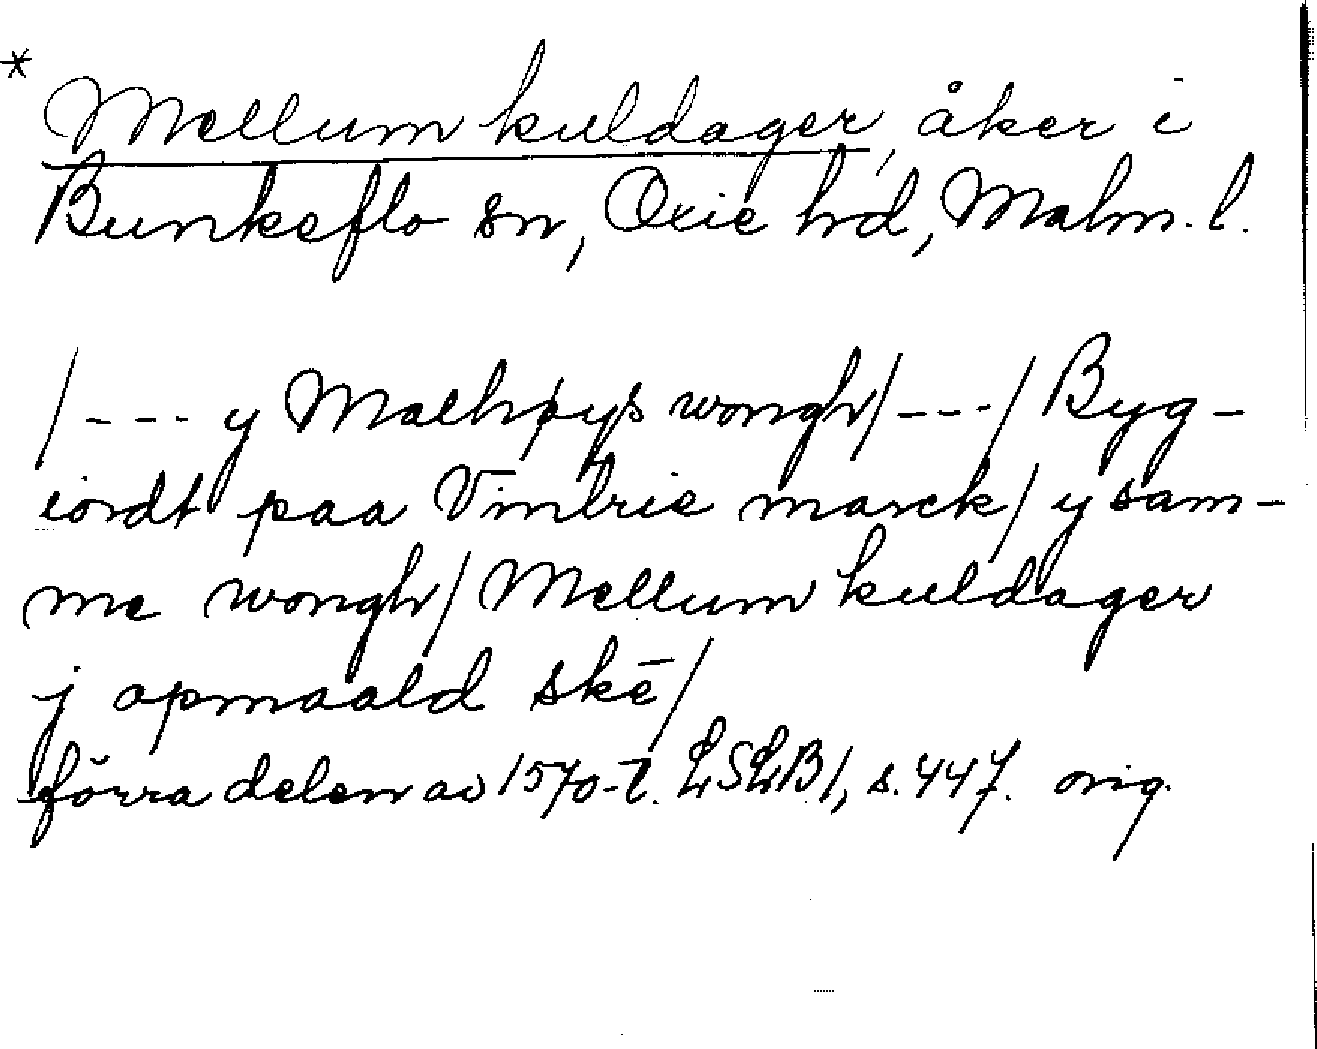 * Mellum kuldager, åker i
Bunkeflo sn, Oxie hd, Malm. l.
/--- y Malhøys wongh/---/ Byg-
iordt paa Vintrie marck/ y sam-
me wongh/ Mellum kuldager
j opmaald skē/
förra delen av 1570-t. LSLB1, s. 447. orig.